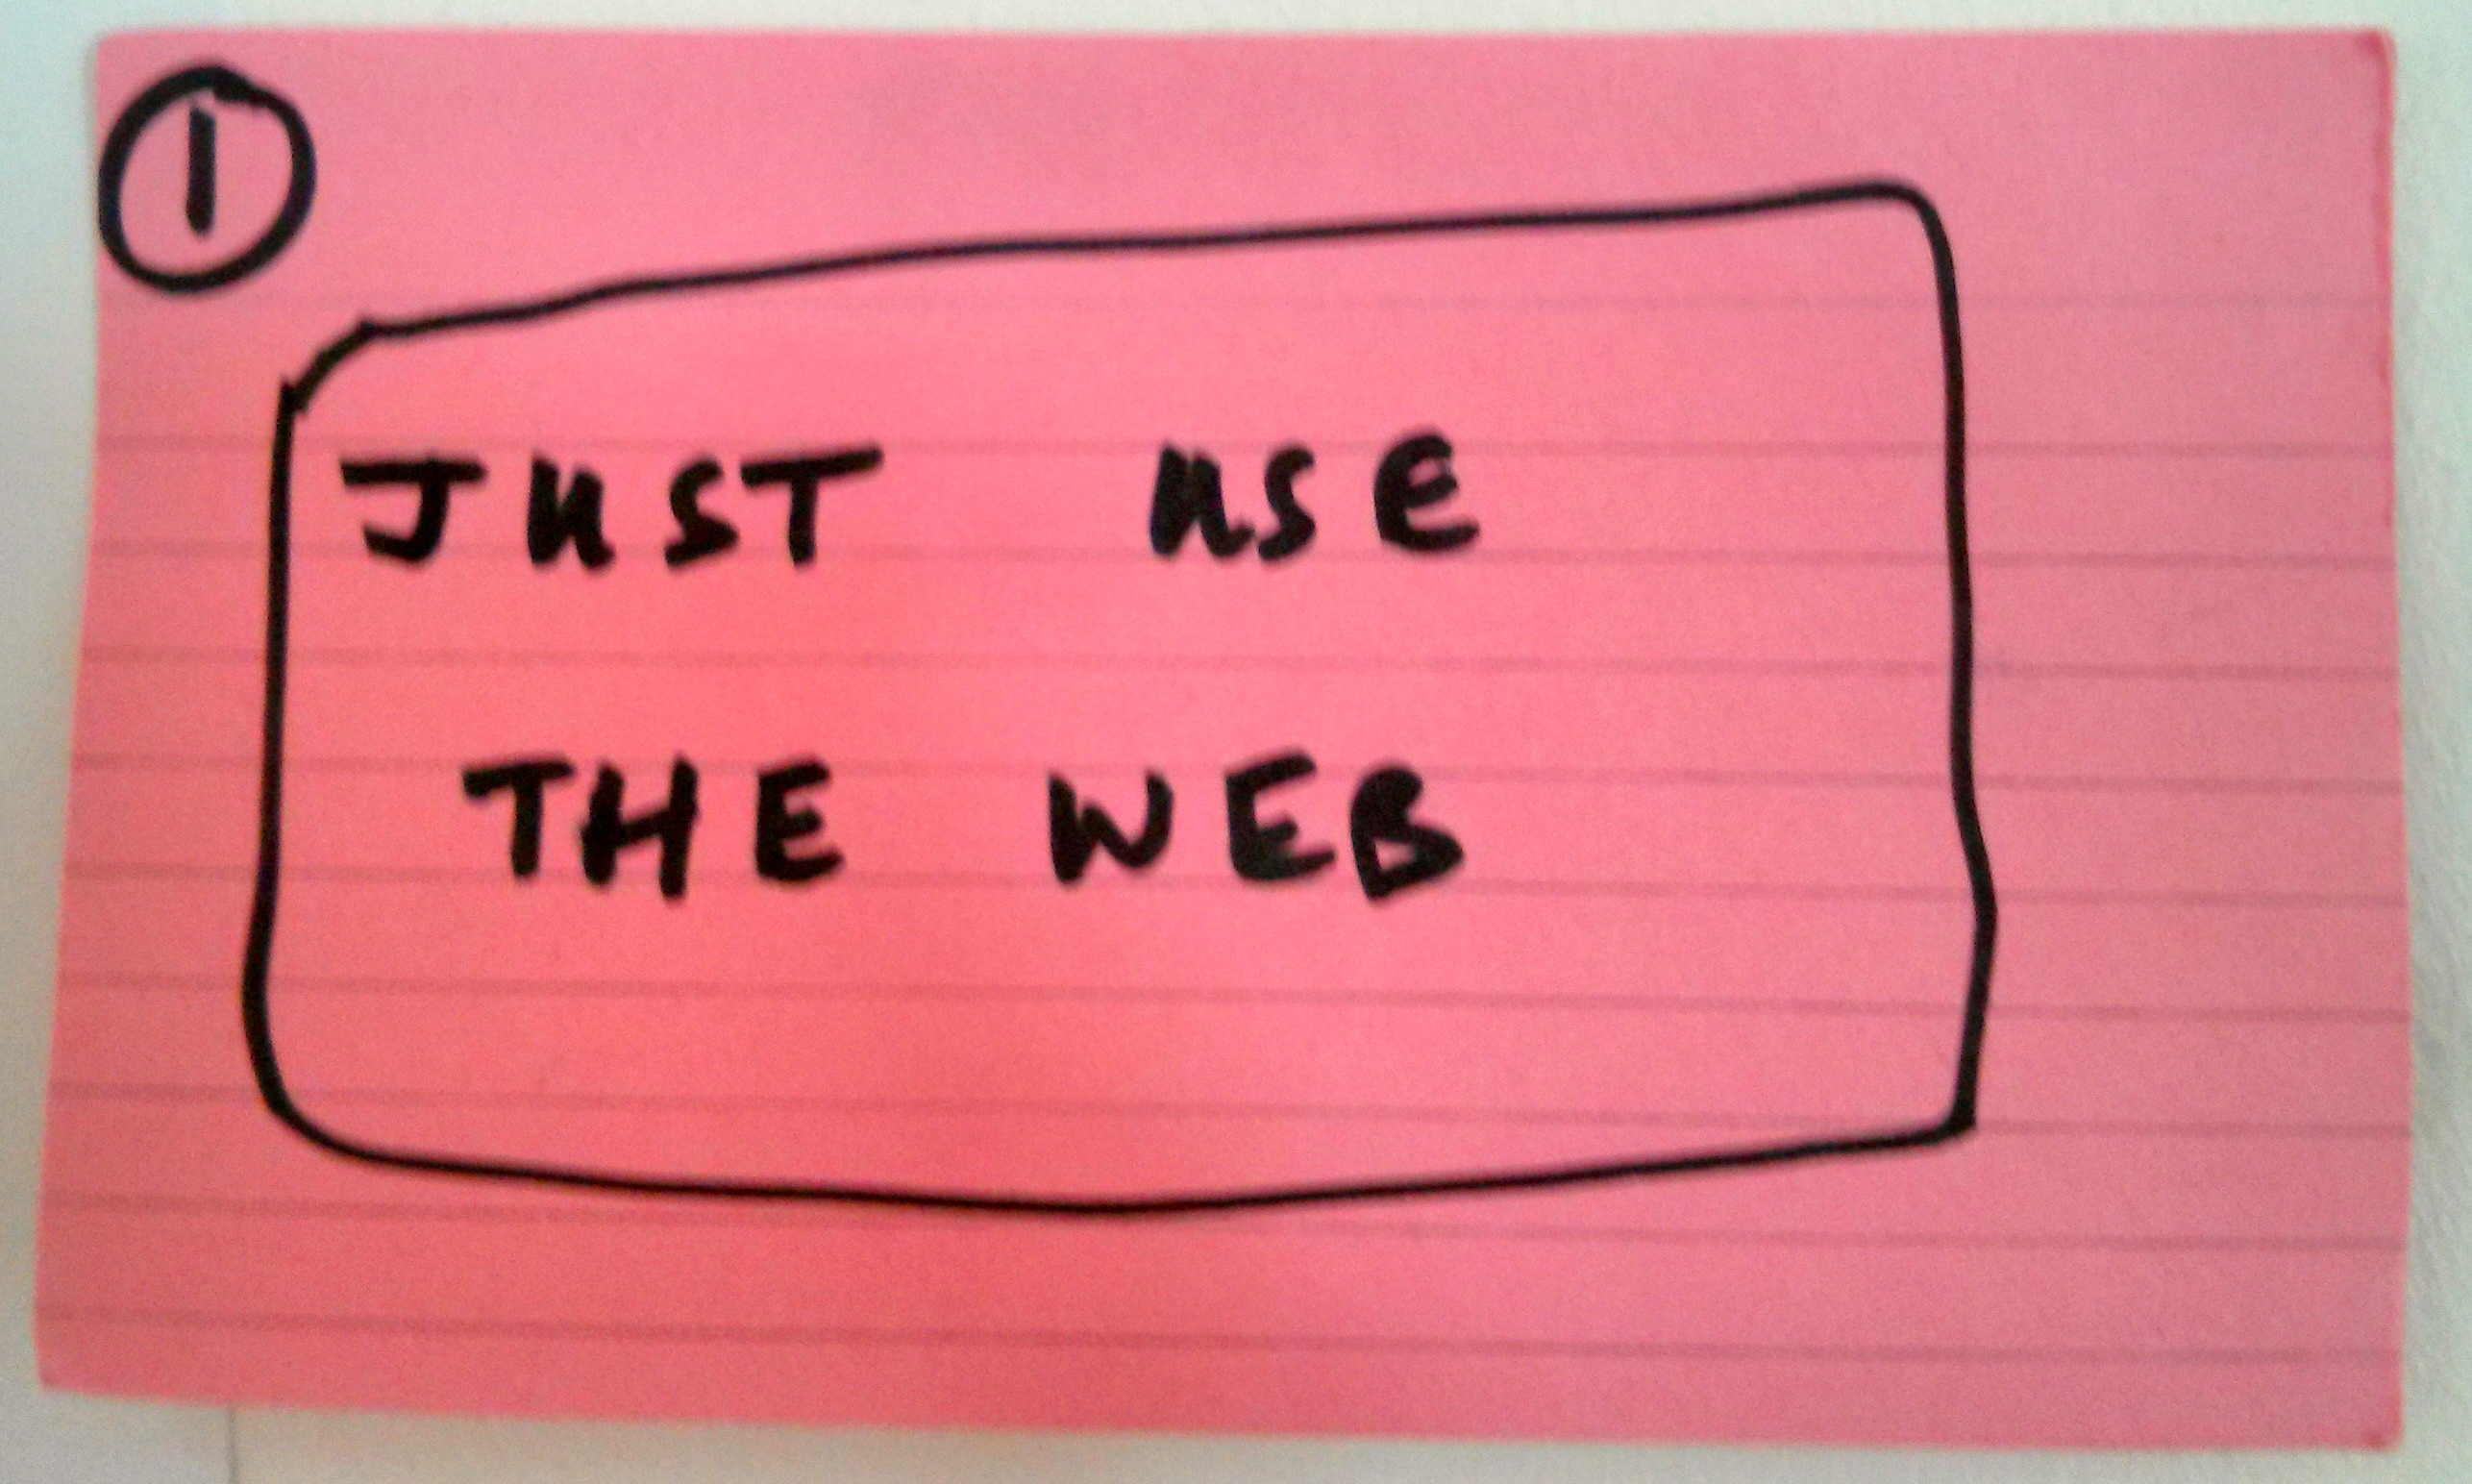 1
JUST USE
THE WEB